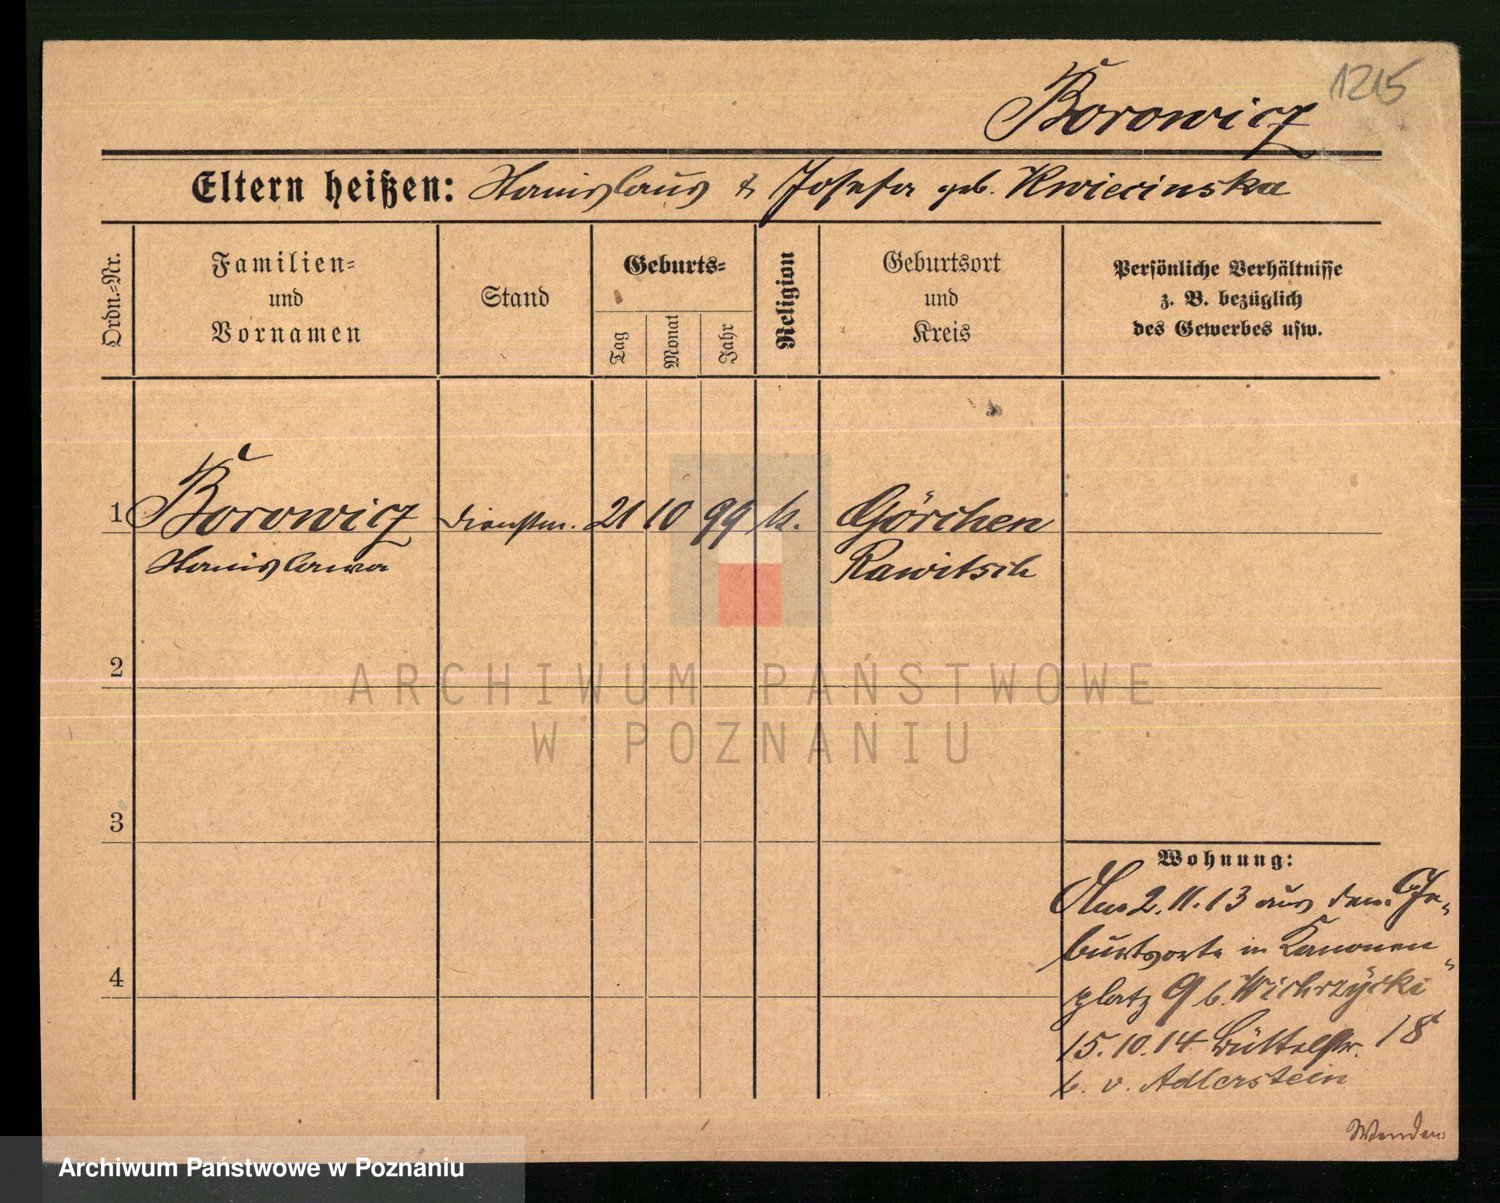 1215
Borowicz
Eltern heißen: Stanislaus & Josefa geb. Kwiecinska
Ordn.-Nr.
Familien=
und
Vornamen
Stand
Geburts=
Tag
Monat
Jahr
Religion
Geburtsort
und
Kreis
Persönliche Verhältnisse
z. B. bezüglich
des Gewerbes usw.
1 Borowicz Dienstm. 21 10 99 k. Görchen
Stanislawa Rawitsch
2
3
4
Wohnung:
Am 2.11.13 aus dem Ge-
burtsorte in Kanonen-
platz 9 b. Wichrzycki
15.10.14 Büttelstr. 18
b. v. Adlerstein
ARCHIWUM PAŃSTWOWE
W POZNANIU
Archiwum Państwowe w Poznaniu